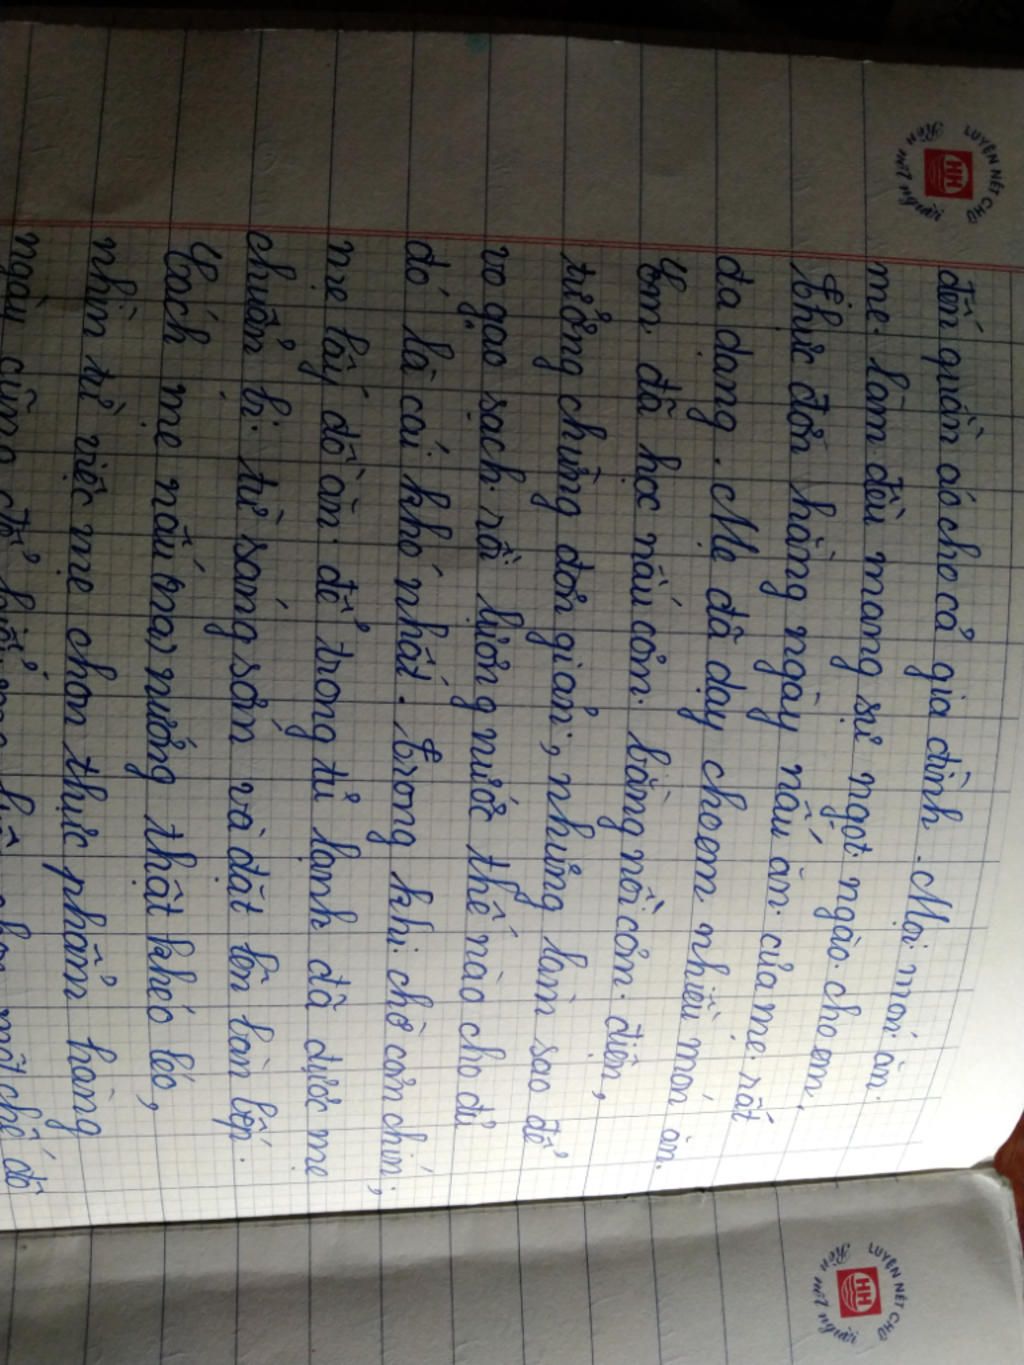 LUYỆN NÉT CHỮ
Rèn nết người
HH
đến quần áo cho cả gia đình. Mọi món ăn
mẹ làm đều mang sự ngọt ngào cho em.
Thực đơn hằng ngày nấu ăn của mẹ rất
đa dạng. Mẹ đã dạy cho em nhiều món ăn.
Em đã học nấu cơm bằng nồi cơm điện,
tưởng chừng đơn giản, nhưng làm sao để
vo gạo sạch rồi lượng nước thế nào cho đủ
đó là cái khó nhất. Trong khi chờ cơm chín,
mẹ lấy đồ ăn để trong tủ lạnh đã được mẹ
chuẩn bị từ sáng sớm và đặt lên bàn bếp.
Cách mẹ nấu nướng thật khéo léo,
nhìn từ việc mẹ chọn thực phẩm hàng
ngày cũng đủ một chế độ
LUYỆN NÉT CHỮ
Rèn nết người
HH